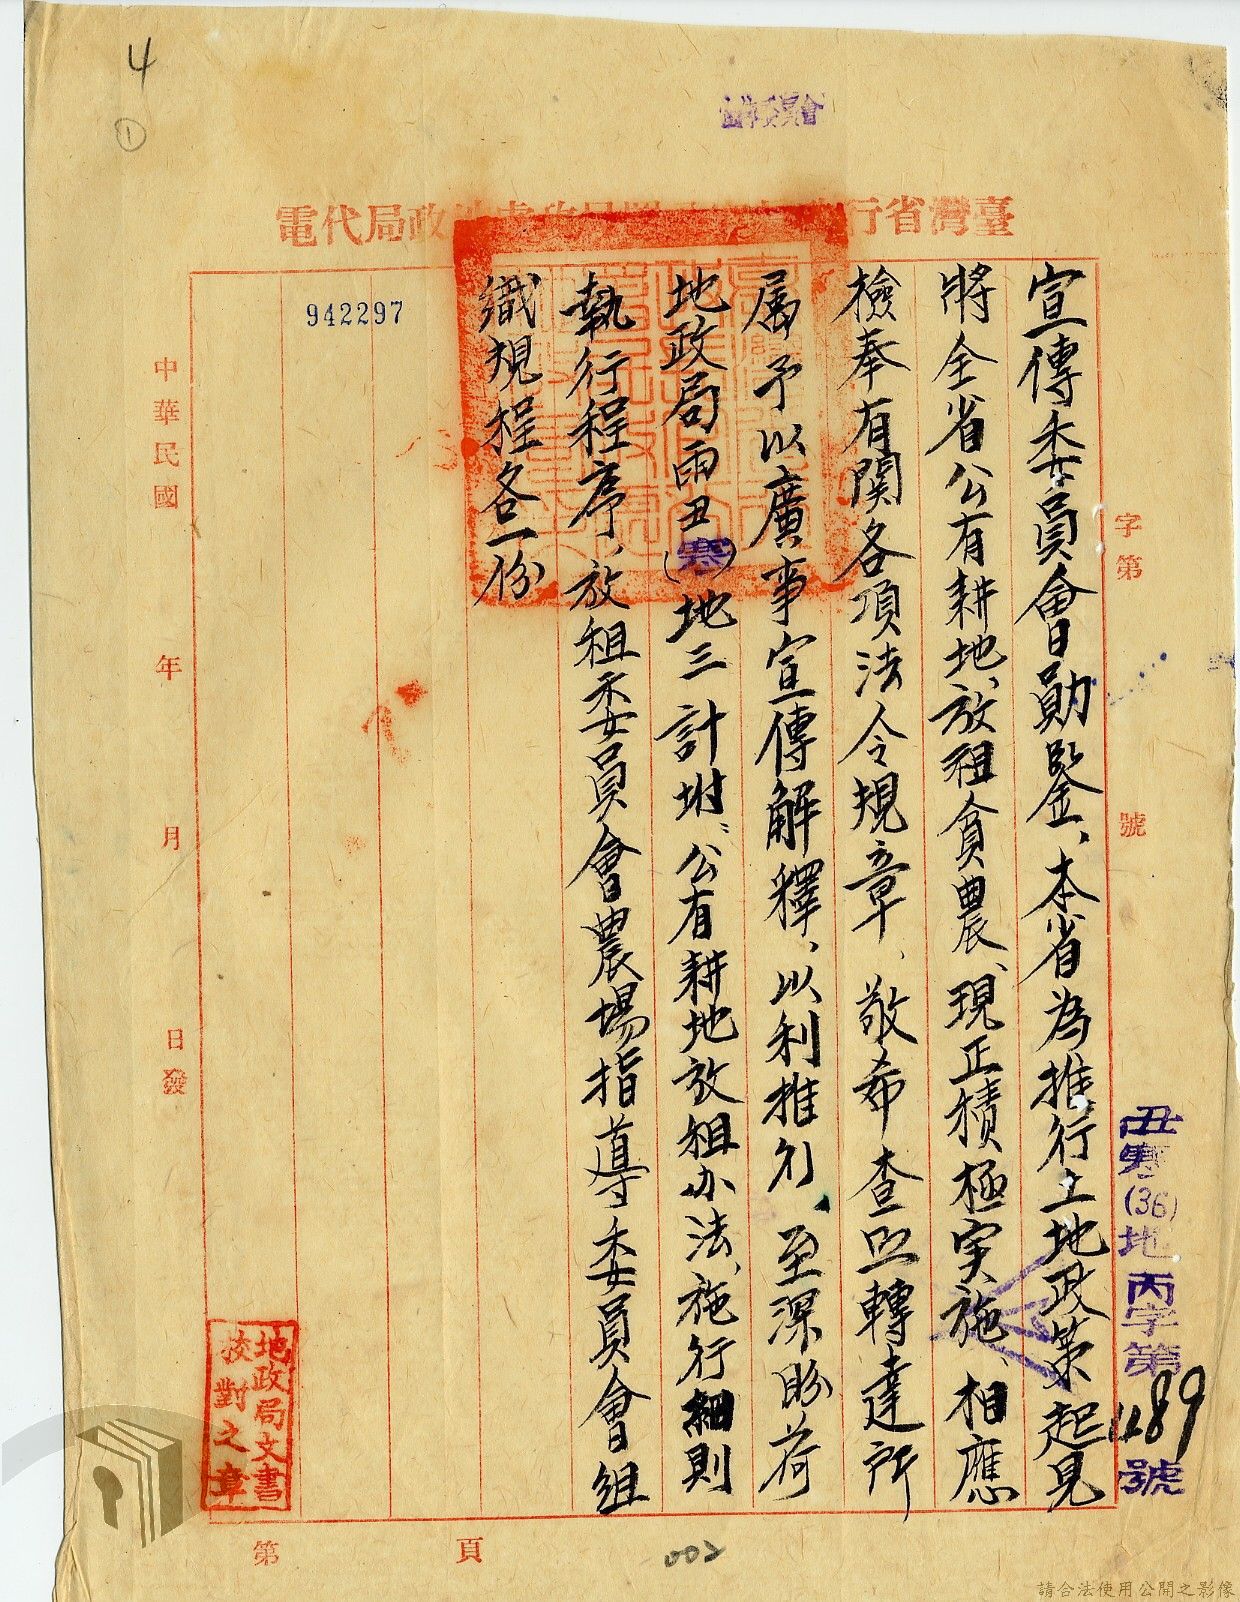 4
①
宣傳委員會
臺灣省行政長官公署民政處地政局代電
字第 號
丑寒(36)地丙字第1189號
宣傳委員會勛鑒、本省為推行土地政策起見
將全省公有耕地、放租貪農、現正積極実施、相應
檢奉有関各項法令規章、敬希查照轉達所
属予以廣事宣傳解釋、以利推行、至深盼荷
地政局丙丑(寒)地三 計坿:公有耕地放租办法、施行細則
執行程序、放租委員會農場指導委員會組
織規程各一份
942297
中華民國 年 月 日發
地政局文書
校對之章
第 頁
002
請合法使用公開之影像